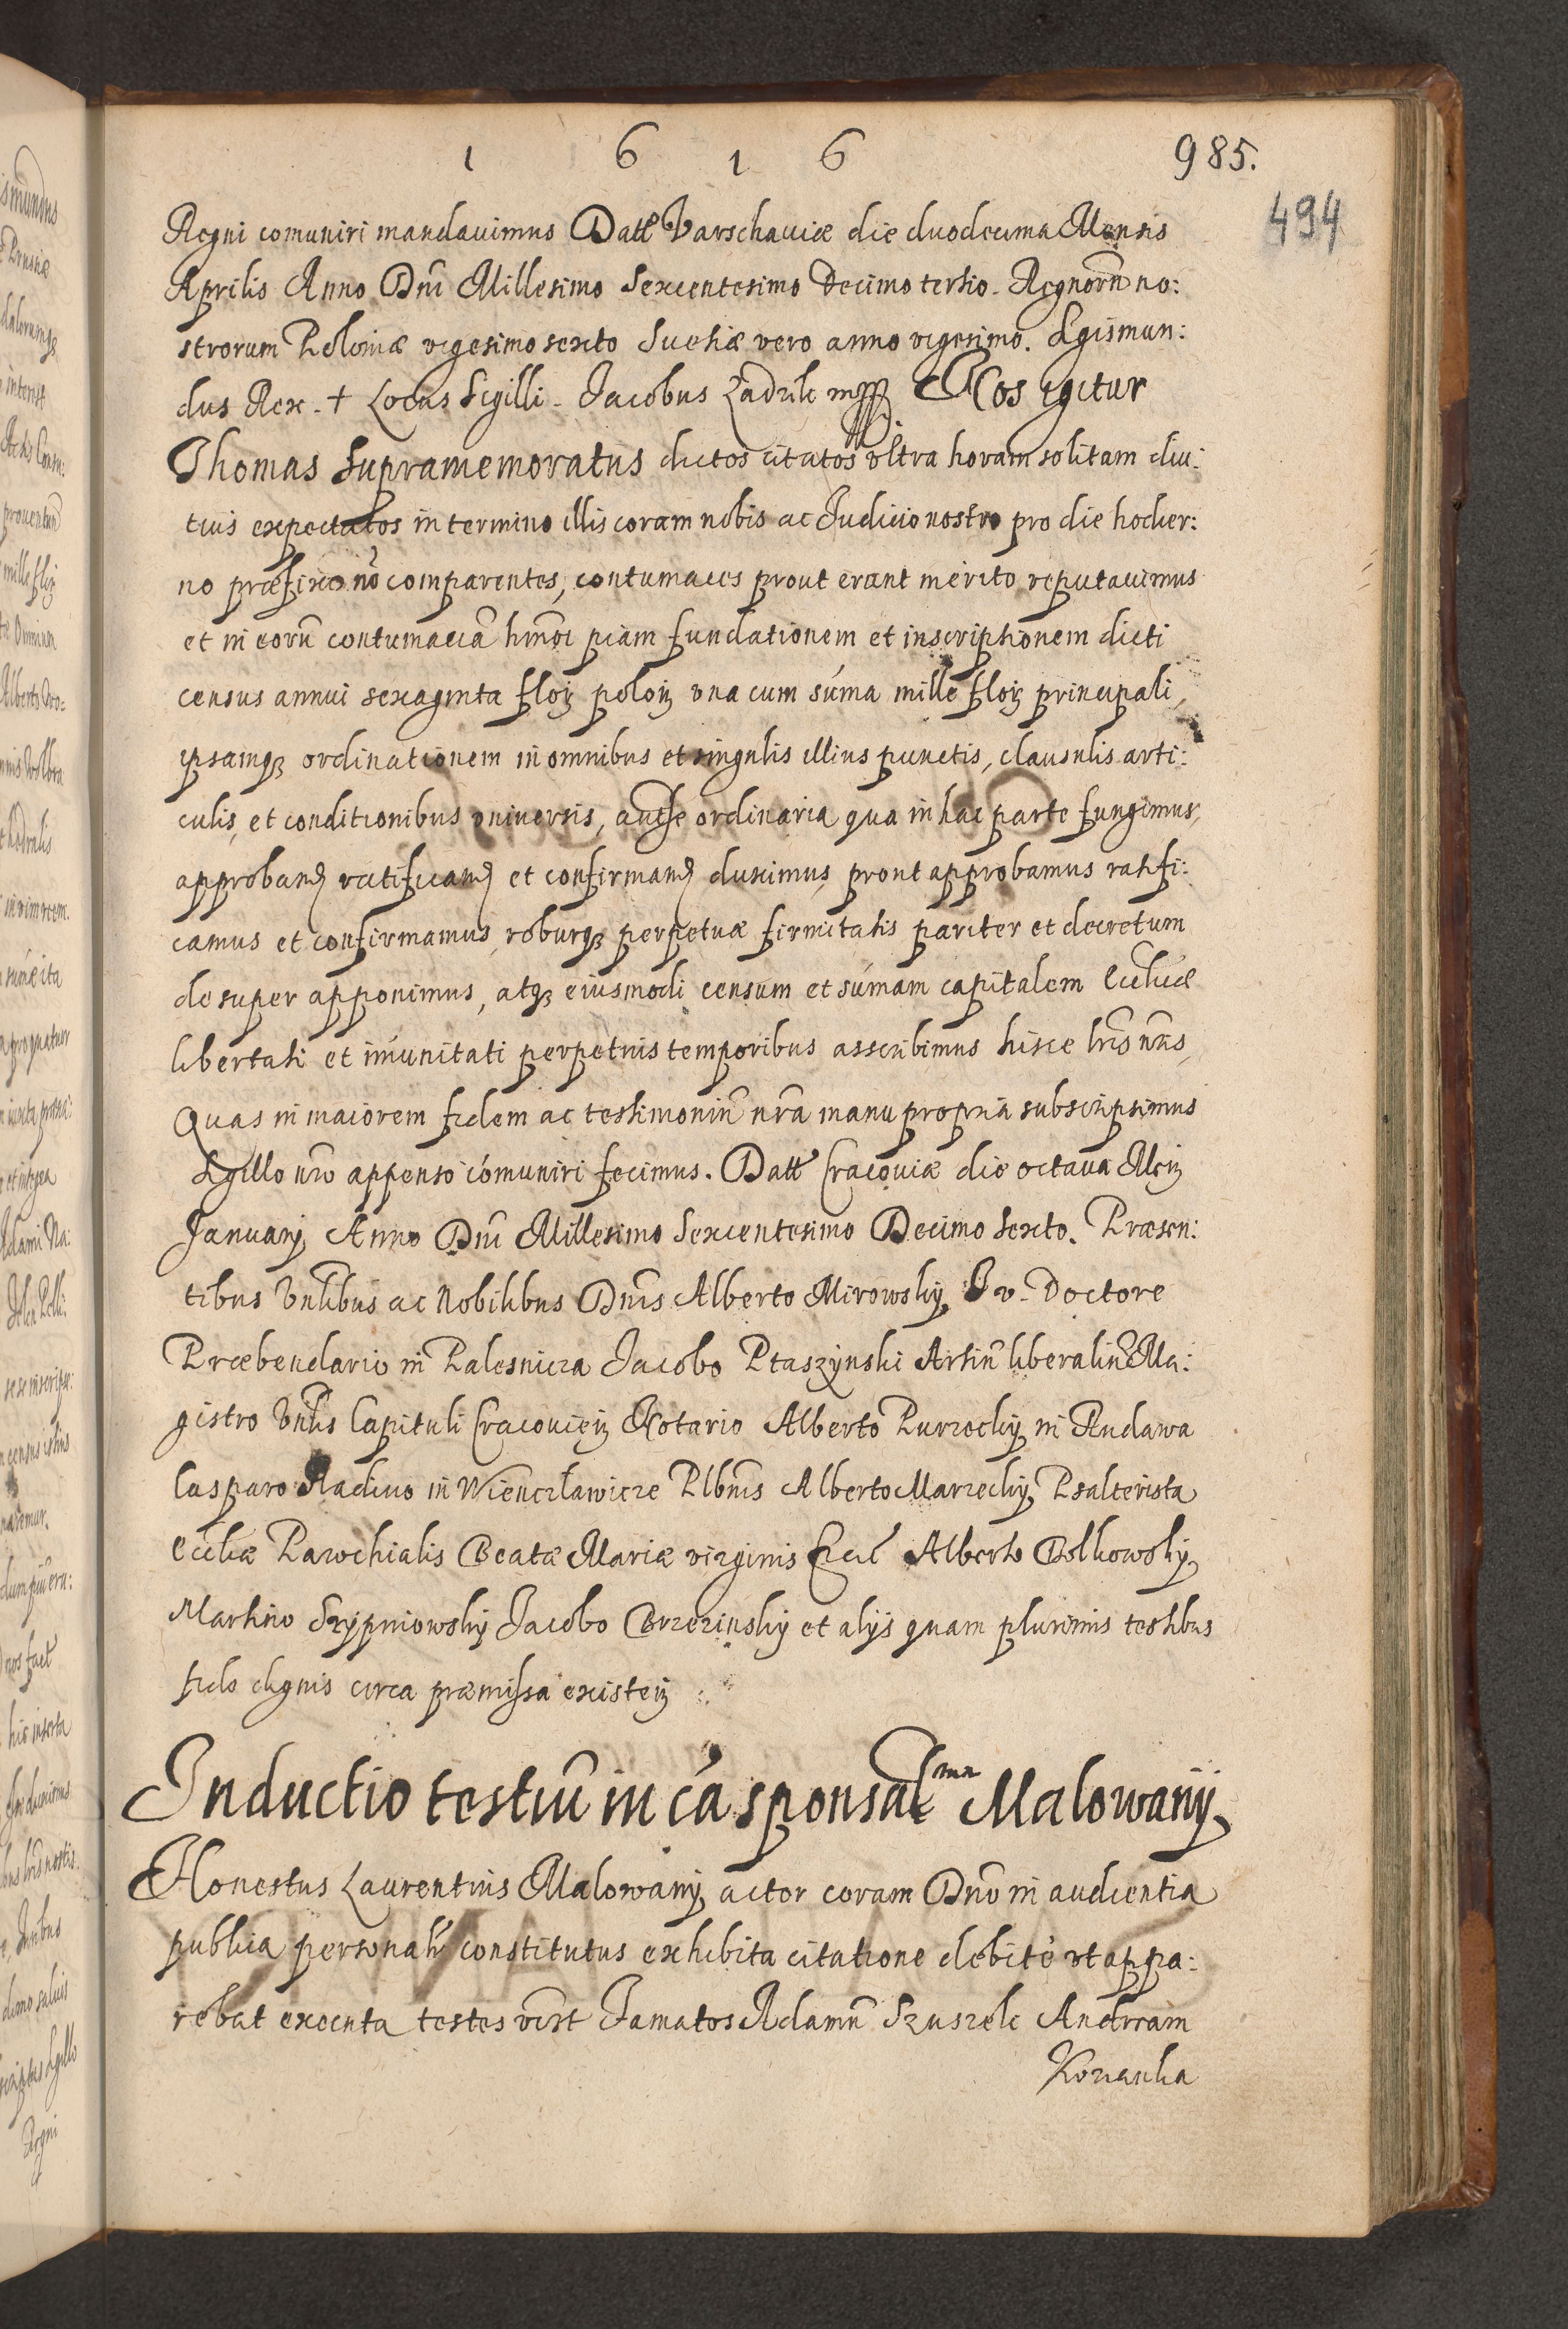 1 6 1 6 985.
494
Regni comuniri mandauimus Datt Varschauiæ die duodecima Mensis
Aprilis Anno Dni Millesimo Sexcentesimo Decimo tertio. Regnorũ no:
strorum Poloniæ vigesimo sexto Suetiæ vero anno vigesimo. Sigismun:
dus Rex. + Locus Sigilli. Jacobus Zadzik mpp Nos igitur
Thomas supramemoratus dictos citatos vltra horam solitam diu:
tius expectatos in termino illis coram nobis ac Judicio nostro pro die hodier:
no præfixo nõ comparentes, contumaces prout erant merito reputauimus
et in eorũ contumaciã hmõi piam fundationem et inscriptionem dicti
census annui sexaginta floɀ poloɀ vna cum sũma mille floɀ principali,
ipsamqɜ ordinationem in omnibus et singulis illius punctis, clausulis arti:
culis, et conditionibus vniuersis, authe ordinaria qua in hac parte fungimus,
approband ratificand et confirmand duximus, prout approbamus ratifi:
camus et confirmamus, roburqɜ perpetuæ firmitatis pariter et decretum
desuper apponimus, atqɜ eiusmodi censum et sũmam capitalem Ecclicæ
libertati et imũnitati perpetuis temporibus asscribimus hisce lris nris,
Quas in maiorem fidem ac testimoniũ nra manu propria subscripsimus
Sigillo nro appenso comũniri fecimus. Datt Cracouiæ die octaua Meɀ
Januarij Anno Dni Millesimo Sexcentesimo Decimo Sexto. Præsen:
tibus Vnlibus ac Nobilibus Dnis Alberto Mirowsky J v. Doctore
Præbendario in Palesnicza Jacobo Ptaszynski Artiũ liberaliũ Ma:
gistro Vnlis Capituli Cracouieɀ Notario Alberto Purzecky in Rudawa
Casparo Radiuo in Wienczławicze Plbnis Alberto Marzecky Psalterista
Eccliæ Parochialis Beatæ Mariæ virginis Crac Alberto Bolkowsky
Martino Szypniowsky Jacobo Brzezinsky et alijs quam plurimis testibus
fide dignis circa præmissa existeɀ
Inductio testiũ in cã sponsalmã Malowanij
Honestus Laurentius Malowany actor coram Dno in audientia
publica personalr constitutus exhibita citatione debite vt appa:
rebat executa testes Famatos Adamũ Szuszek Andream